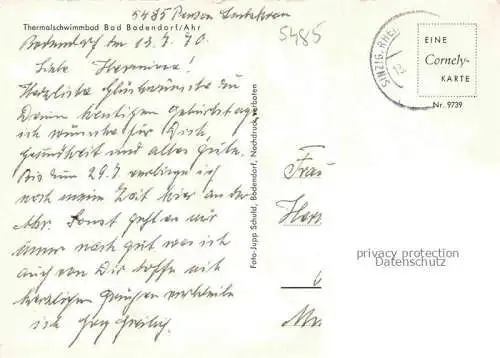 5485
5485
Thermalschwimmbad Bad Bodendorf/Ahr
Bodendorf den 13.7.70.
Liebe Hermine!
Herzliche Glückwünsche zu
Deinem heutigen Geburtstage
ich wünsche für Dich,
Gesundheit und alles Gute.
Bis zum 29.7. verbringe ich
noch meine Zeit hier an der
Ahr. Sonst geht es mir
immer noch gut was ich
auch von Dir hoffe mit
herzlichen Grüßen verbleibe
ich
Foto-Jupp Schuld, Bodendorf, Nachdruck verboten
SINZIG, RHEIN
EINE
Cornely-
KARTE
Nr. 9739
Frau
Her
privacy protection
Datenschutz